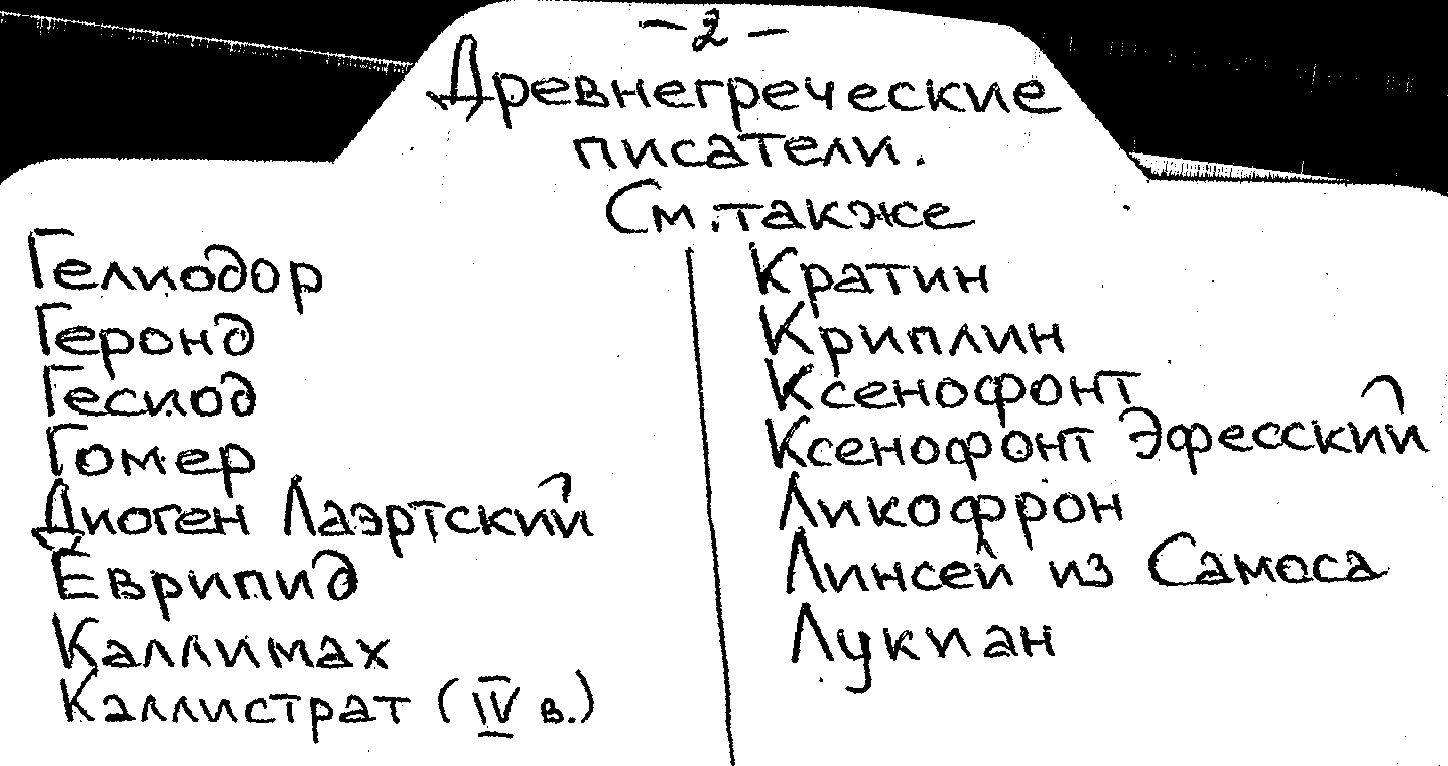 - 2 -
Древнегреческие
писатели.
См. также
Гелиодор
Геронд
Гесиод
Гомер
Диоген Лаэртский
Еврипид
Каллимах
Каллистрат (IV в.)
Кратин
Криплин
Ксенофонт
Ксенофонт Эфесский
Ликофрон
Линсей из Самоса
Лукиан